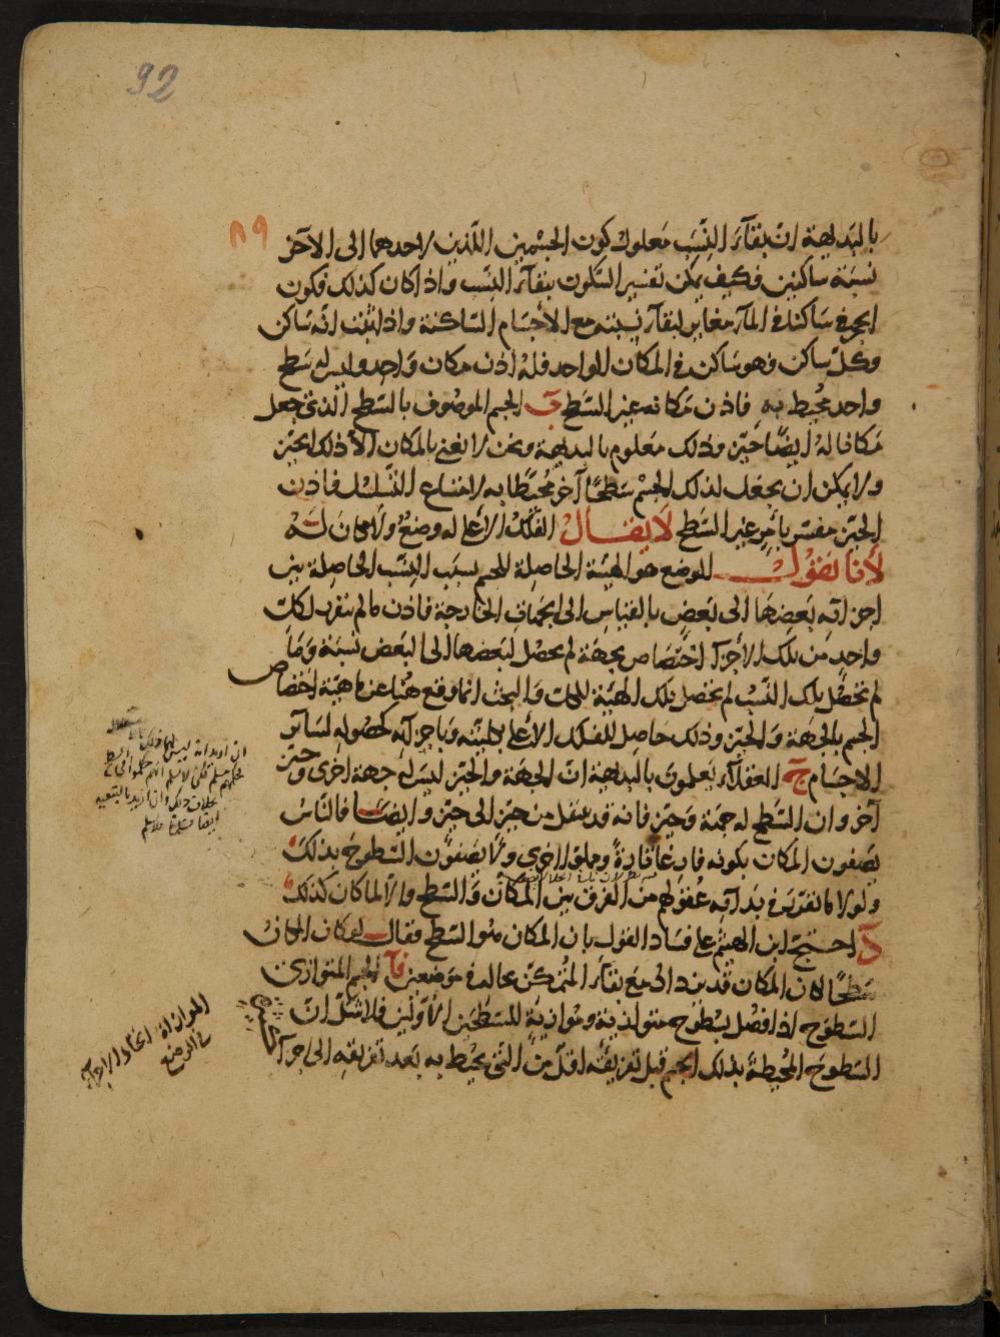 92
٨٩
بالبديهة ان بقآء النسب معلول كون الجسمين اللذين لاحدهما الى الآخر
نسبة ساكنين فكيف يمكن تفسير السكون ببقآء النسب واذا كان كذلك فكون
الحجر ساكنا فى المآء مغاير لبقآء نسبته مع الأجسام الساكنة واذا ثبت انه ساكن
وكل ساكن فهو ساكن فى المكان الواحد فله اذن مكان واحد وليس له سطح
واحد محيط به فاذن مكانه غير السطح ب الجسم الموصوف بالسطح الذى جعل
مكانا له ايضا حيز وذلك معلوم بالبديهة ونحن لا نعنى بالمكان الا ذلك الحيز
ولا يمكن ان يجعل لذلك الجسم سطحا آخر محيطا به لامتناع التسلسل فاذن
الحيز مفسر بأمر غير السطح لا يقال الفلك الاعلى له وضع ولا مكان له
لأنا نقول الوضع هو الهيئة الحاصلة للجسم بسبب النسب الحاصلة بين
اجزائه بعضها الى بعض بالقياس الى الجهات الخارجة فاذن ما لم نفرض لكل
واحد من تلك الأجزآء اختصاص بجهة لم يحصل لبعضها الى البعض نسبة وما
لم تحصل تلك النسب لم تحصل تلك الهيئة والبحث انما وقع هنا عن ماهية اختصاص
الجسم بالجهة والحيز وذلك حاصل للفلك الاعلى بكليته وباجزآئه كحصوله لسآئر
الاجسام ج العقلآء يعلمون بالبديهة ان الجهة والحيز ليس له جهة اخرى وحيز
آخر وان السطح له جهة وحيز فانه قد ينتقل من حيز الى حيز وايضا فالناس
يصفون المكان بكونه فارغا تارة ومملوءا اخرى ولا يصفون السطوح بذلك
ولولا ما تقرر فى بدآئه عقولهم من الفرق بين المكان والسطح والا لما كان كذلك
د احتج ابن الهيثم على فساد القول بان المكان هو السطح فقال لو كان المكان
سطحا لكان المكان قد يزداد مع بقآء المتمكن بحاله فى موضعين فآ الجسم المتوازى
السطوح اذا فصل بسطوح متوازية وموازية للسطحين الاولين فلا شك ان
السطوح المحيطة بذلك الجسم قبل تفريقه اقل من التى يحيط به بعد تفريقه الى اجزآء
الموازاة اتحاد الاجزآء
فى الوضع